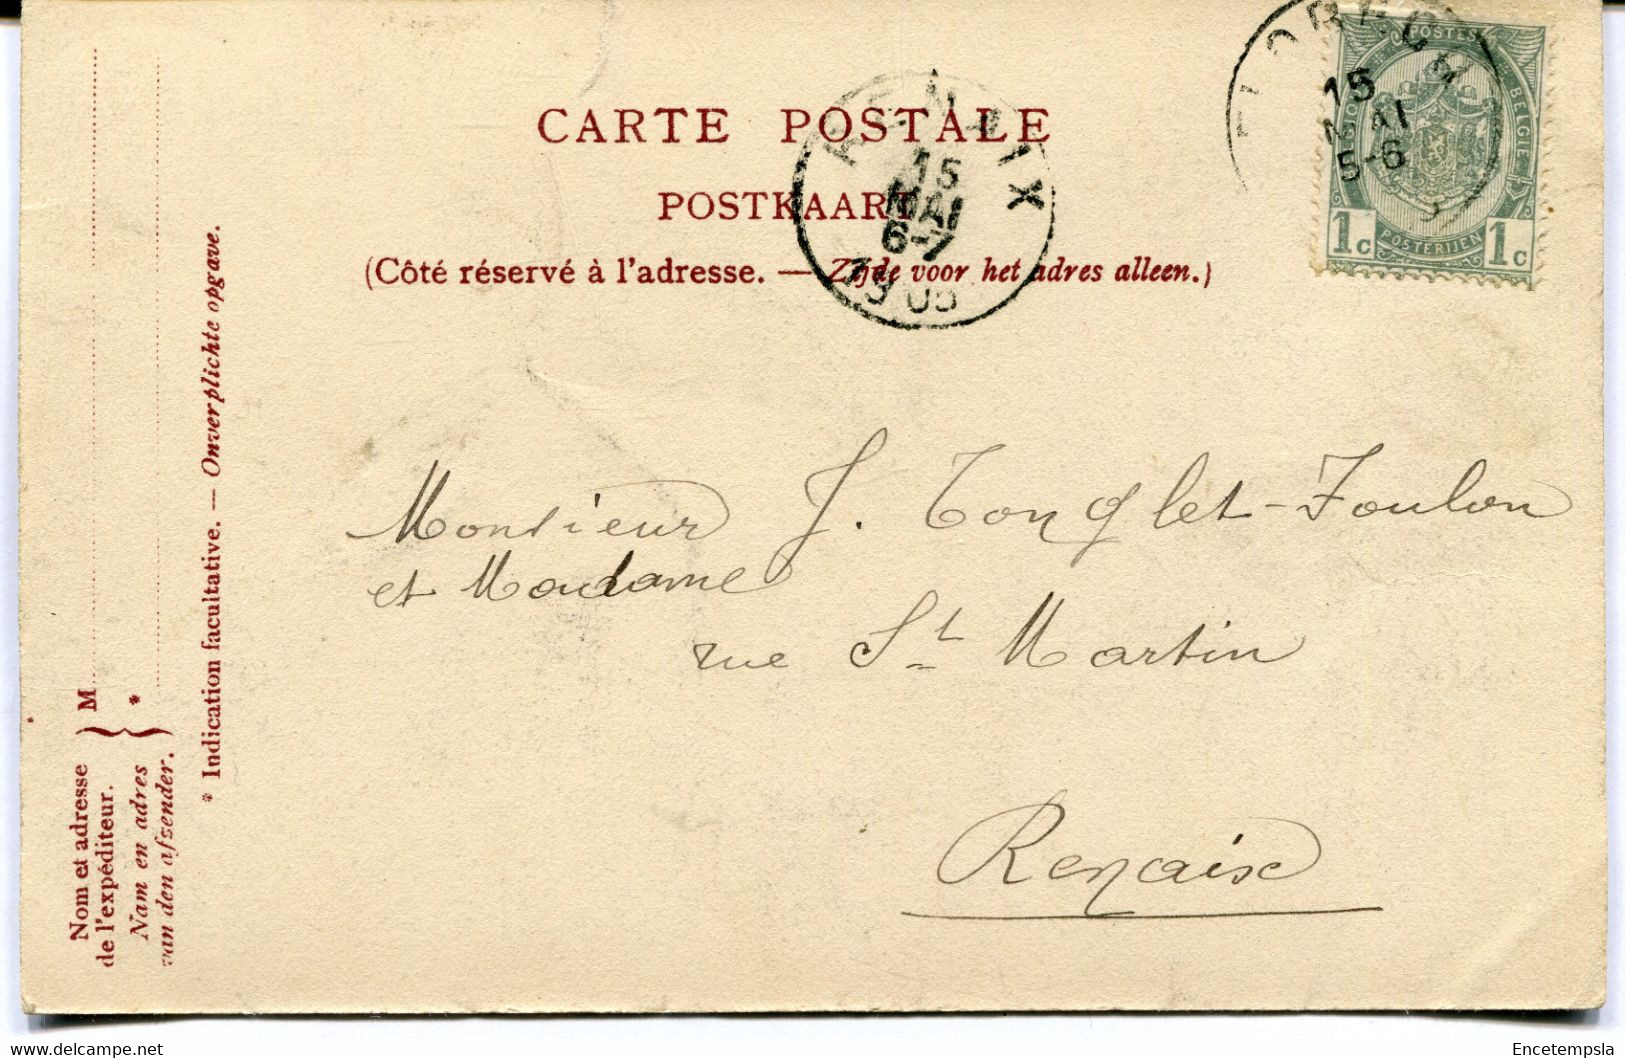 CARTE POSTALE
POSTKAART
(Côté réservé à l'adresse. — Zijde voor het adres alleen.)
RENAIX
15
MAI
6-7
1905
FLOBECQ
15
MAI
5-6
POSTES
BELGIE
1c POSTERIJEN 1c
Monsieur J. Tonglet-Foulon
et Madame
rue St Martin
Renaix
Nom et adresse
de l'expéditeur.
Nam en adres
van den afzender.
M
*
* Indication facultative. — Onverplichte opgave.
www.delcampe.net
Encetempsla